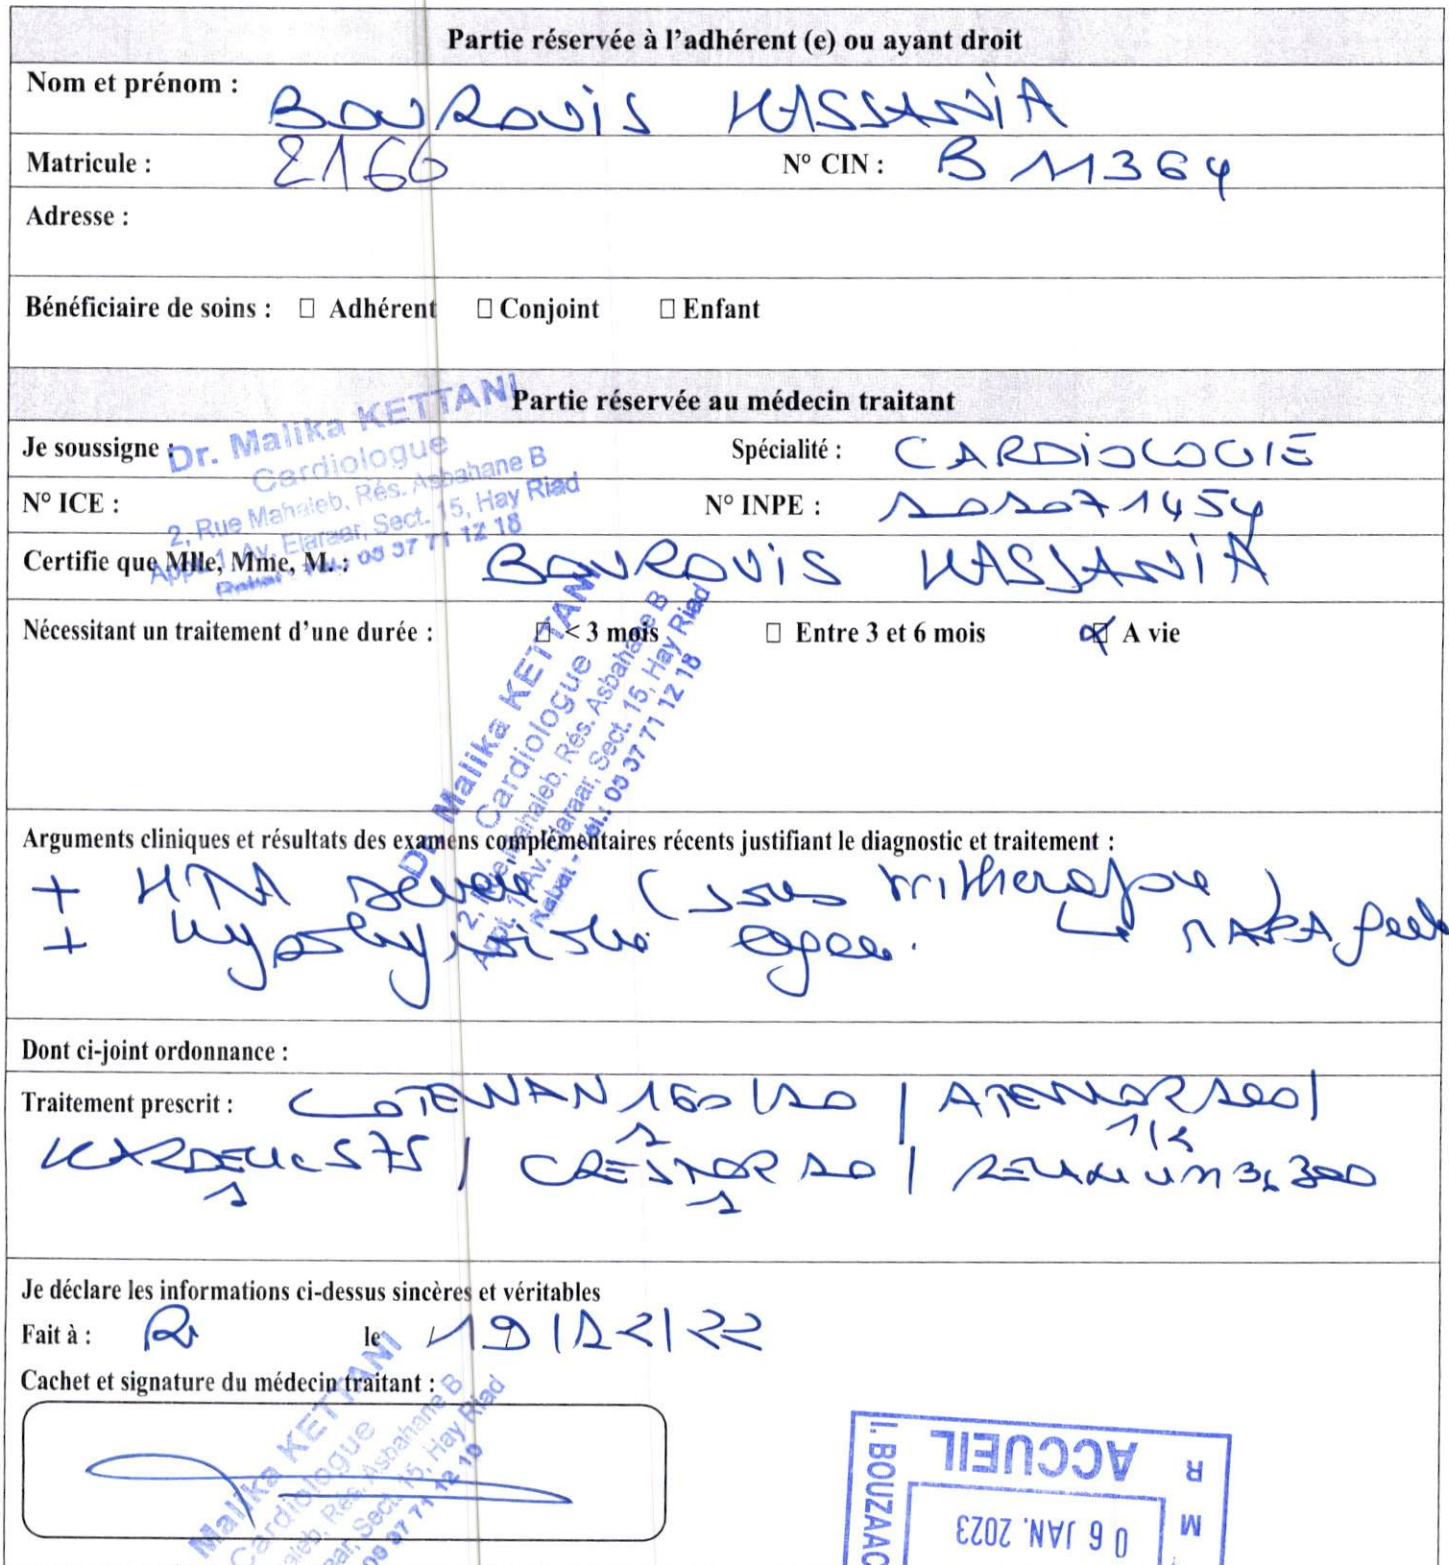 Partie réservée à l'adhérent (e) ou ayant droit
Nom et prénom : BOUROUIS HASSANIA
Matricule : 2166 N° CIN : B 11364
Adresse :
Bénéficiaire de soins : □ Adhérent □ Conjoint □ Enfant
Partie réservée au médecin traitant
Dr. Malika KETTANI
Cardiologue
2, Rue Mahaleb, Rés. Asbahane B
Appt. 1 Av. Elaraar, Sect. 15, Hay Riad
Rabat - Tél.: 05 37 71 12 18
Je soussigne : Spécialité : CARDIOLOGIE
N° ICE : N° INPE : 101071454
Certifie que Mlle, Mme, M. : BOUROUIS HASSANIA
Nécessitant un traitement d'une durée : □ < 3 mois □ Entre 3 et 6 mois □ A vie
Dr. Malika KETTANI
Cardiologue
2, Rue Mahaleb, Rés. Asbahane B
Appt. 1 Av. Elaraar, Sect. 15, Hay Riad
Rabat - Tél.: 05 37 71 12 18
Arguments cliniques et résultats des examens complémentaires récents justifiant le diagnostic et traitement :
+ HTA sévère (sous trithérapie)
+ MAPA
Dont ci-joint ordonnance :
Traitement prescrit : COTEWAN 160/10 | ATENOR 100 |
1 1/2
KARDEGIC 75 | CRESTOR 10 |
1 1
Je déclare les informations ci-dessus sincères et véritables
Fait à : le 19/12/22
Cachet et signature du médecin traitant :
Malika KETTANI
Cardiologue
Rés. Asbahane B
Sect. 15, Hay Riad
R M
ACCUEIL
06 JAN. 2023
I. BOUZAAC